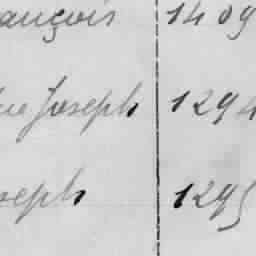 ançois 1409
ue Joseph 1294
oseph 1295